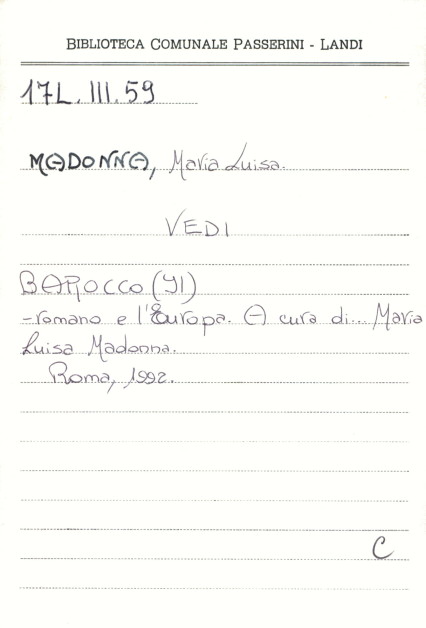 BIBLIOTECA COMUNALE PASSERINI - LANDI
17L. III. 59
MADONNA, Maria Luisa.
VEDI
BAROCCO (Il)
-romano e l'Europa. A cura di... Maria
Luisa Madonna.
Roma, 1992.
C